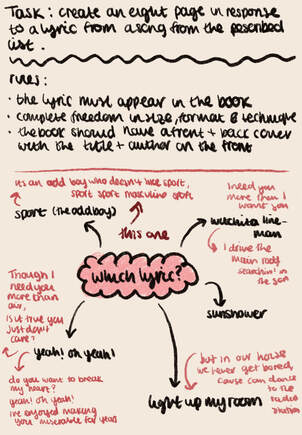 Task: create an eight page in response
to a lyric from a song from the pescribed
list.
rules:
· the lyric must appear in the book
· complete freedom in size, format & technique
· the book should have a front + back cover
with the title + author on the front
its an odd boy who doesn't like sport,
sport sport masculine sport
sport (the odd boy)
this one
I need you
more than I
want you
wichita line-
man
I drive the
main road
searchin' in
the sun
which lyric?
Though I
need you
more than
air,
is it true you
just don't
care?
sunshower
yeah! oh yeah!
do you want to break
my heart?
yeah! oh yeah!
i've enjoyed making
you miserable for years
but in our house
we never get bored,
cause can dance
to the
radio
light up my room